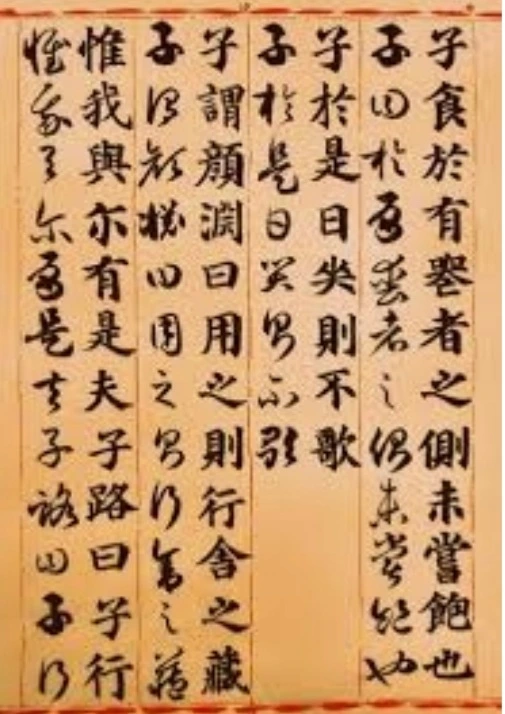 子食於有喪者之側未嘗飽也
子食於有喪者之側未嘗飽也
子於是日哭則不歌
子於是日哭則不歌
子謂顏淵曰用之則行舍之藏
子謂顏淵曰用之則行舍之藏
惟我與尔有是夫子路曰子行
惟我與尔有是夫子路曰子行